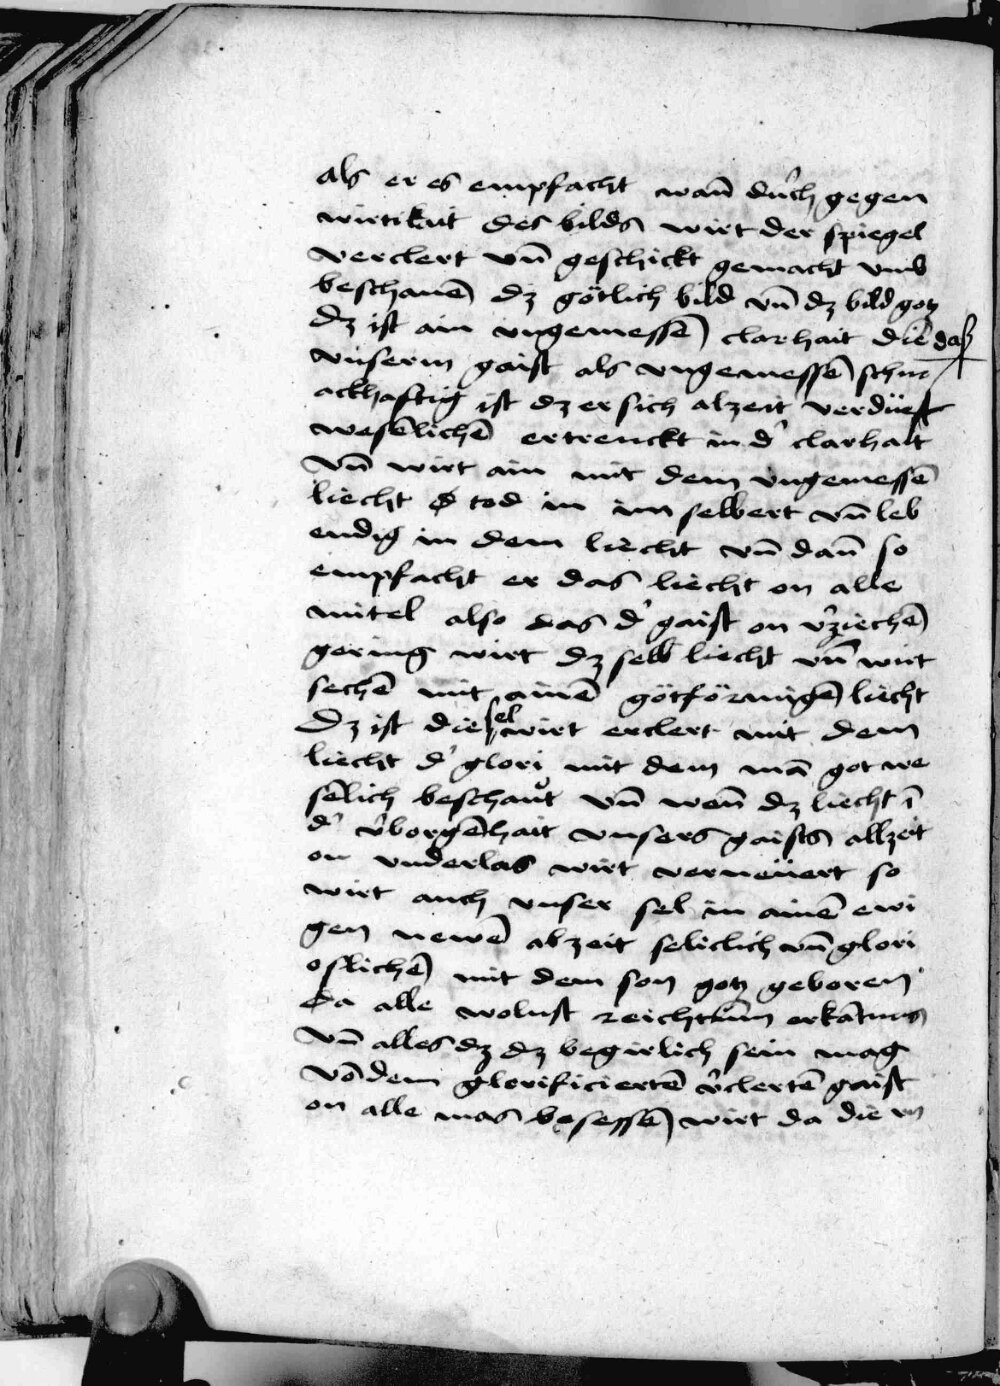 als er es empfacht wan̄ durch gegen
wirtikait des bilds wirt der spiegel
verclert vn̄ geschickt gemacht vmb
beschauen̄ dz götlich bild vn̄ dz bild gotz
dz ist ain vngemessen̄ clarhait die das
vnserm gaist als vngemessen̄ schm
ackhaftig ist dz er sich alzeit verdüest
wesenlichen̄ ertrenckt in d' clarhait
vn̄ wirt ain mit dem vngemessen̄
liecht d tod in im selbert vn̄ leb
endig in dem liecht vn̄ dan̄ so
empfacht er das liecht on alle
mitel also das d' gaist on v'ziechen̄
gering wirt dz selb liecht vn̄ wirt
sechen̄ mit ainen̄ götförmigen̄ liecht
Dz ist die sel wirt erclert mit dem
liecht d' glori mit dem mā got we
selich beschaut vn̄ wen̄ dz liecht ī
d' v'borgen̄hait vnsers gaists allzeit
on vnderlas wirt verneüert so
wirt auch vnser sel in ainē ewi
gen newē alzeit seliclich vn̄ glori
oslichen̄ mit dem son gotz geboren
Da alle wolust reichtum erkātnus
vn̄ alles dz dz begirlich sein mag
vō dem glorificiertē v'clertē gaist
on alle mas besessen̄ wirt da die vn